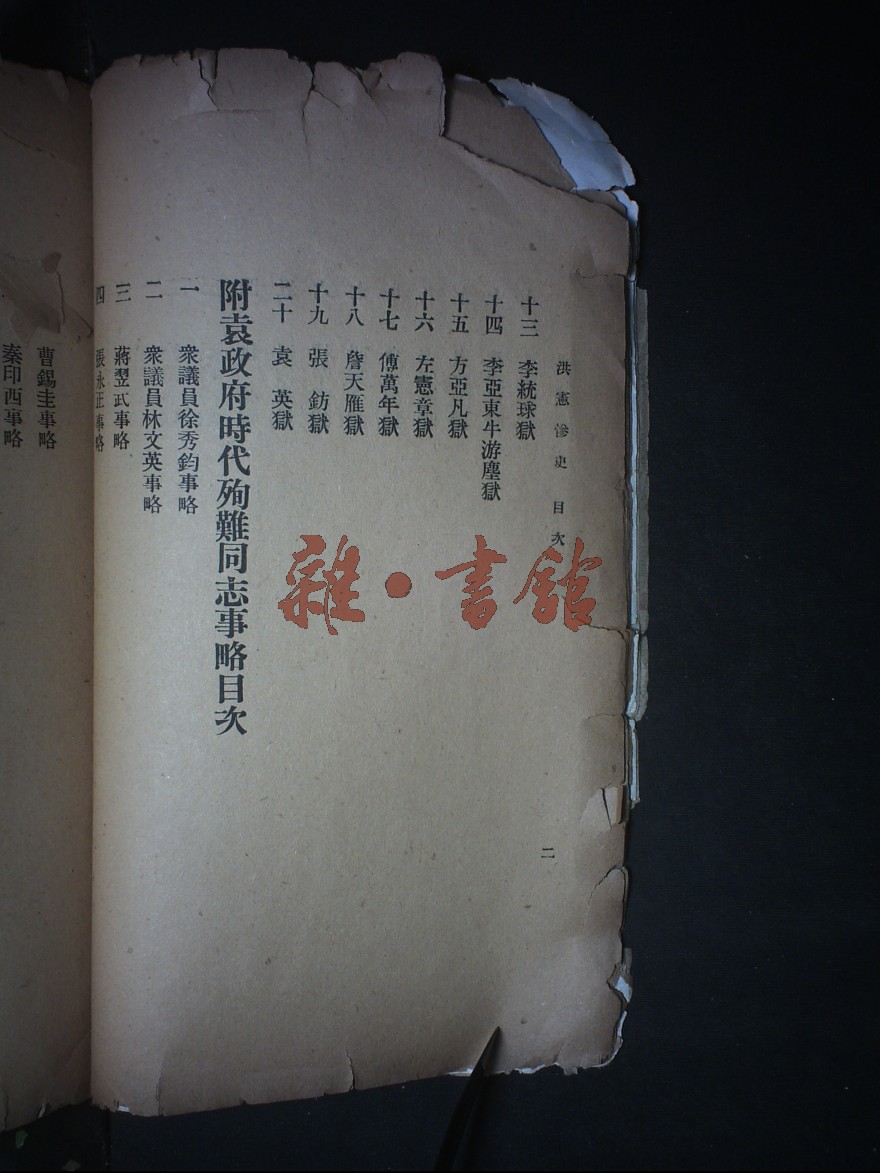 洪憲慘史 目次
十三 李統球獄
十四 李亞東牛游塵獄
十五 方亞凡獄
十六 左憲章獄
十七 傅萬年獄
十八 詹天雁獄
十九 張鈁獄
二十 袁英獄
附袁政府時代殉難同志事略目次
一 衆議員徐秀鈞事略
二 衆議員林文英事略
三 蔣翌武事略
四 張永正事略
二
曹錫圭事略
秦印西事略
雜·書館